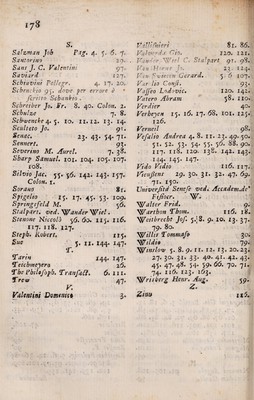 178
S.
Salzman Job Pag. 4. 5. 6. 7.
Santorino 19.
Sans J. C. Valentini 97.
Saviard 117.
Schiavini Pellegr. 4. 17. 20.
Schenckio 95. dove per errore è
scritto Schankio.
Schreiber Jo. Fr. 8. 40. Colon. 2.
Schulze 7. 8.
Schwencke 4. 5. 10. 11. 12. 13. 14.
Sculteto Jo. 91.
Senac. 23. 43. 54. 71.
Sennert. 93.
Severino M. Aurel. 7. 38.
Sharp Samuel. 101. 104. 105. 107.
108.
Silvio Jac. 55. 56. 142. 143. 157.
Colon. 1.
Soraus 81.
Spigelio 15. 17. 45. 53. 109.
Sprengesfeld M. 56.
Stalpart. ved. Wander Wiel.
Stenone Niccolò 56. 60. 115. 116.
117. 118. 127.
Steph. Robert. 115.
Sue 5. 11. 144. 147.
T.
Tarin 144. 147.
Teichmeyero 26.
The Philosoph. Transact. 6. 111.
Trew 47.
V.
Valentini Domenico 3.
Vallisnieri 81. 86.
120. 121.
Stalpart 91. 98.
Gerard. 5. 6 105.
Vassen Lodovic. 120. 142.
Vatero Abram 58. 110.
Verdier 40.
Verheyen 15. 16. 17. 68. 101. 125.
126.
Verneil 98.
Vesalio Andrea 4. 8. 11. 23. 49. 50.
51. 52. 53. 54. 55. 56. 88. 90.
117. 118. 120. 138. 142. 143.
144. 145. 147.
Vido Vidio 116. 117.
Vieussens 29. 30. 31. 32. 47. 69.
71. 150.
Università Senese ved. Accademde'
Fisiocr. W.
Walter Frid. 9.
Warthon Thom. 116. 18.
Weitbrecht Jos. 5. 8. 9. 10. 13. 57.
79. 80.
Willis Tommaso 30.
Wildio 79.
Winslow 5. 8. 9. 11. 12. 13. 20. 23.
27. 30. 31. 33. 40. 41. 42. 43.
45. 47. 48. 54. 59. 66. 70. 71.
74. 116. 123. 163.
Wrisberg Henr. Aug. 59.
Z.
Zinn 116.